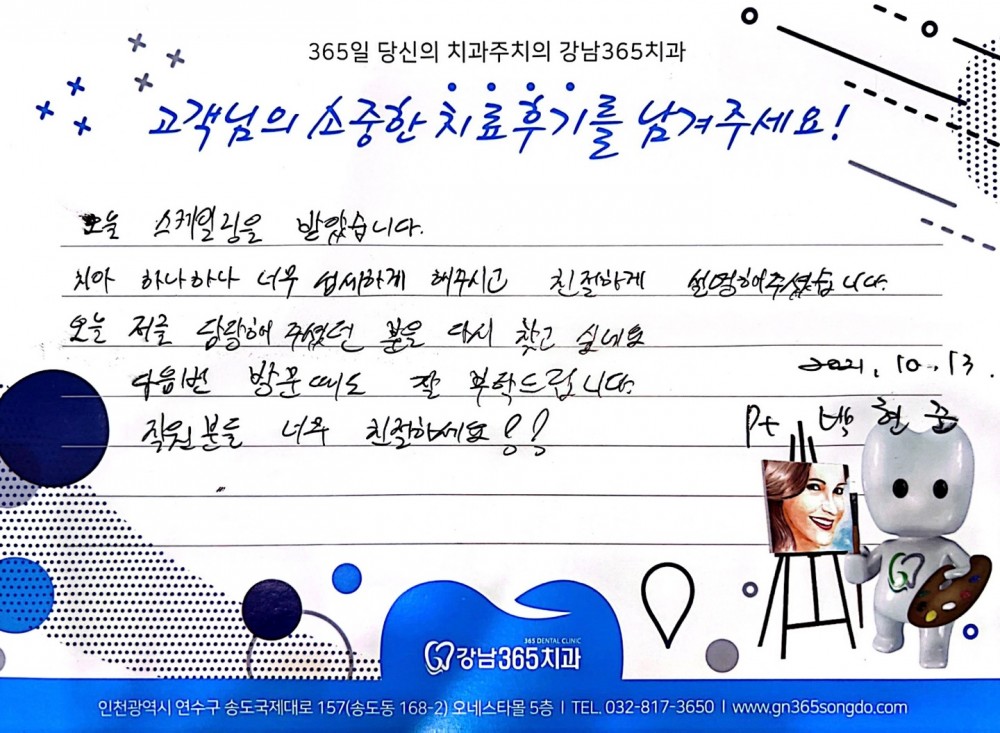 365일 당신의 치과주치의 강남365치과
고객님의 소중한 치료후기를 남겨주세요!
오늘 스케일링을 받았습니다.
치아 하나하나 너무 섬세하게 해주시고 친절하게 설명해주셨습니다.
오늘 저를 담당해주셨던 분을 다시 찾고 싶네요
다음번 방문때도 잘 부탁드립니다.
2021. 10. 13.
직원분들 너무 친절하세요!!
Pt 백현준
365 DENTAL CLINIC
강남365치과
인천광역시 연수구 송도국제대로 157(송도동 168-2) 오네스타몰 5층 | TEL. 032-817-3650 | www.gn365songdo.com